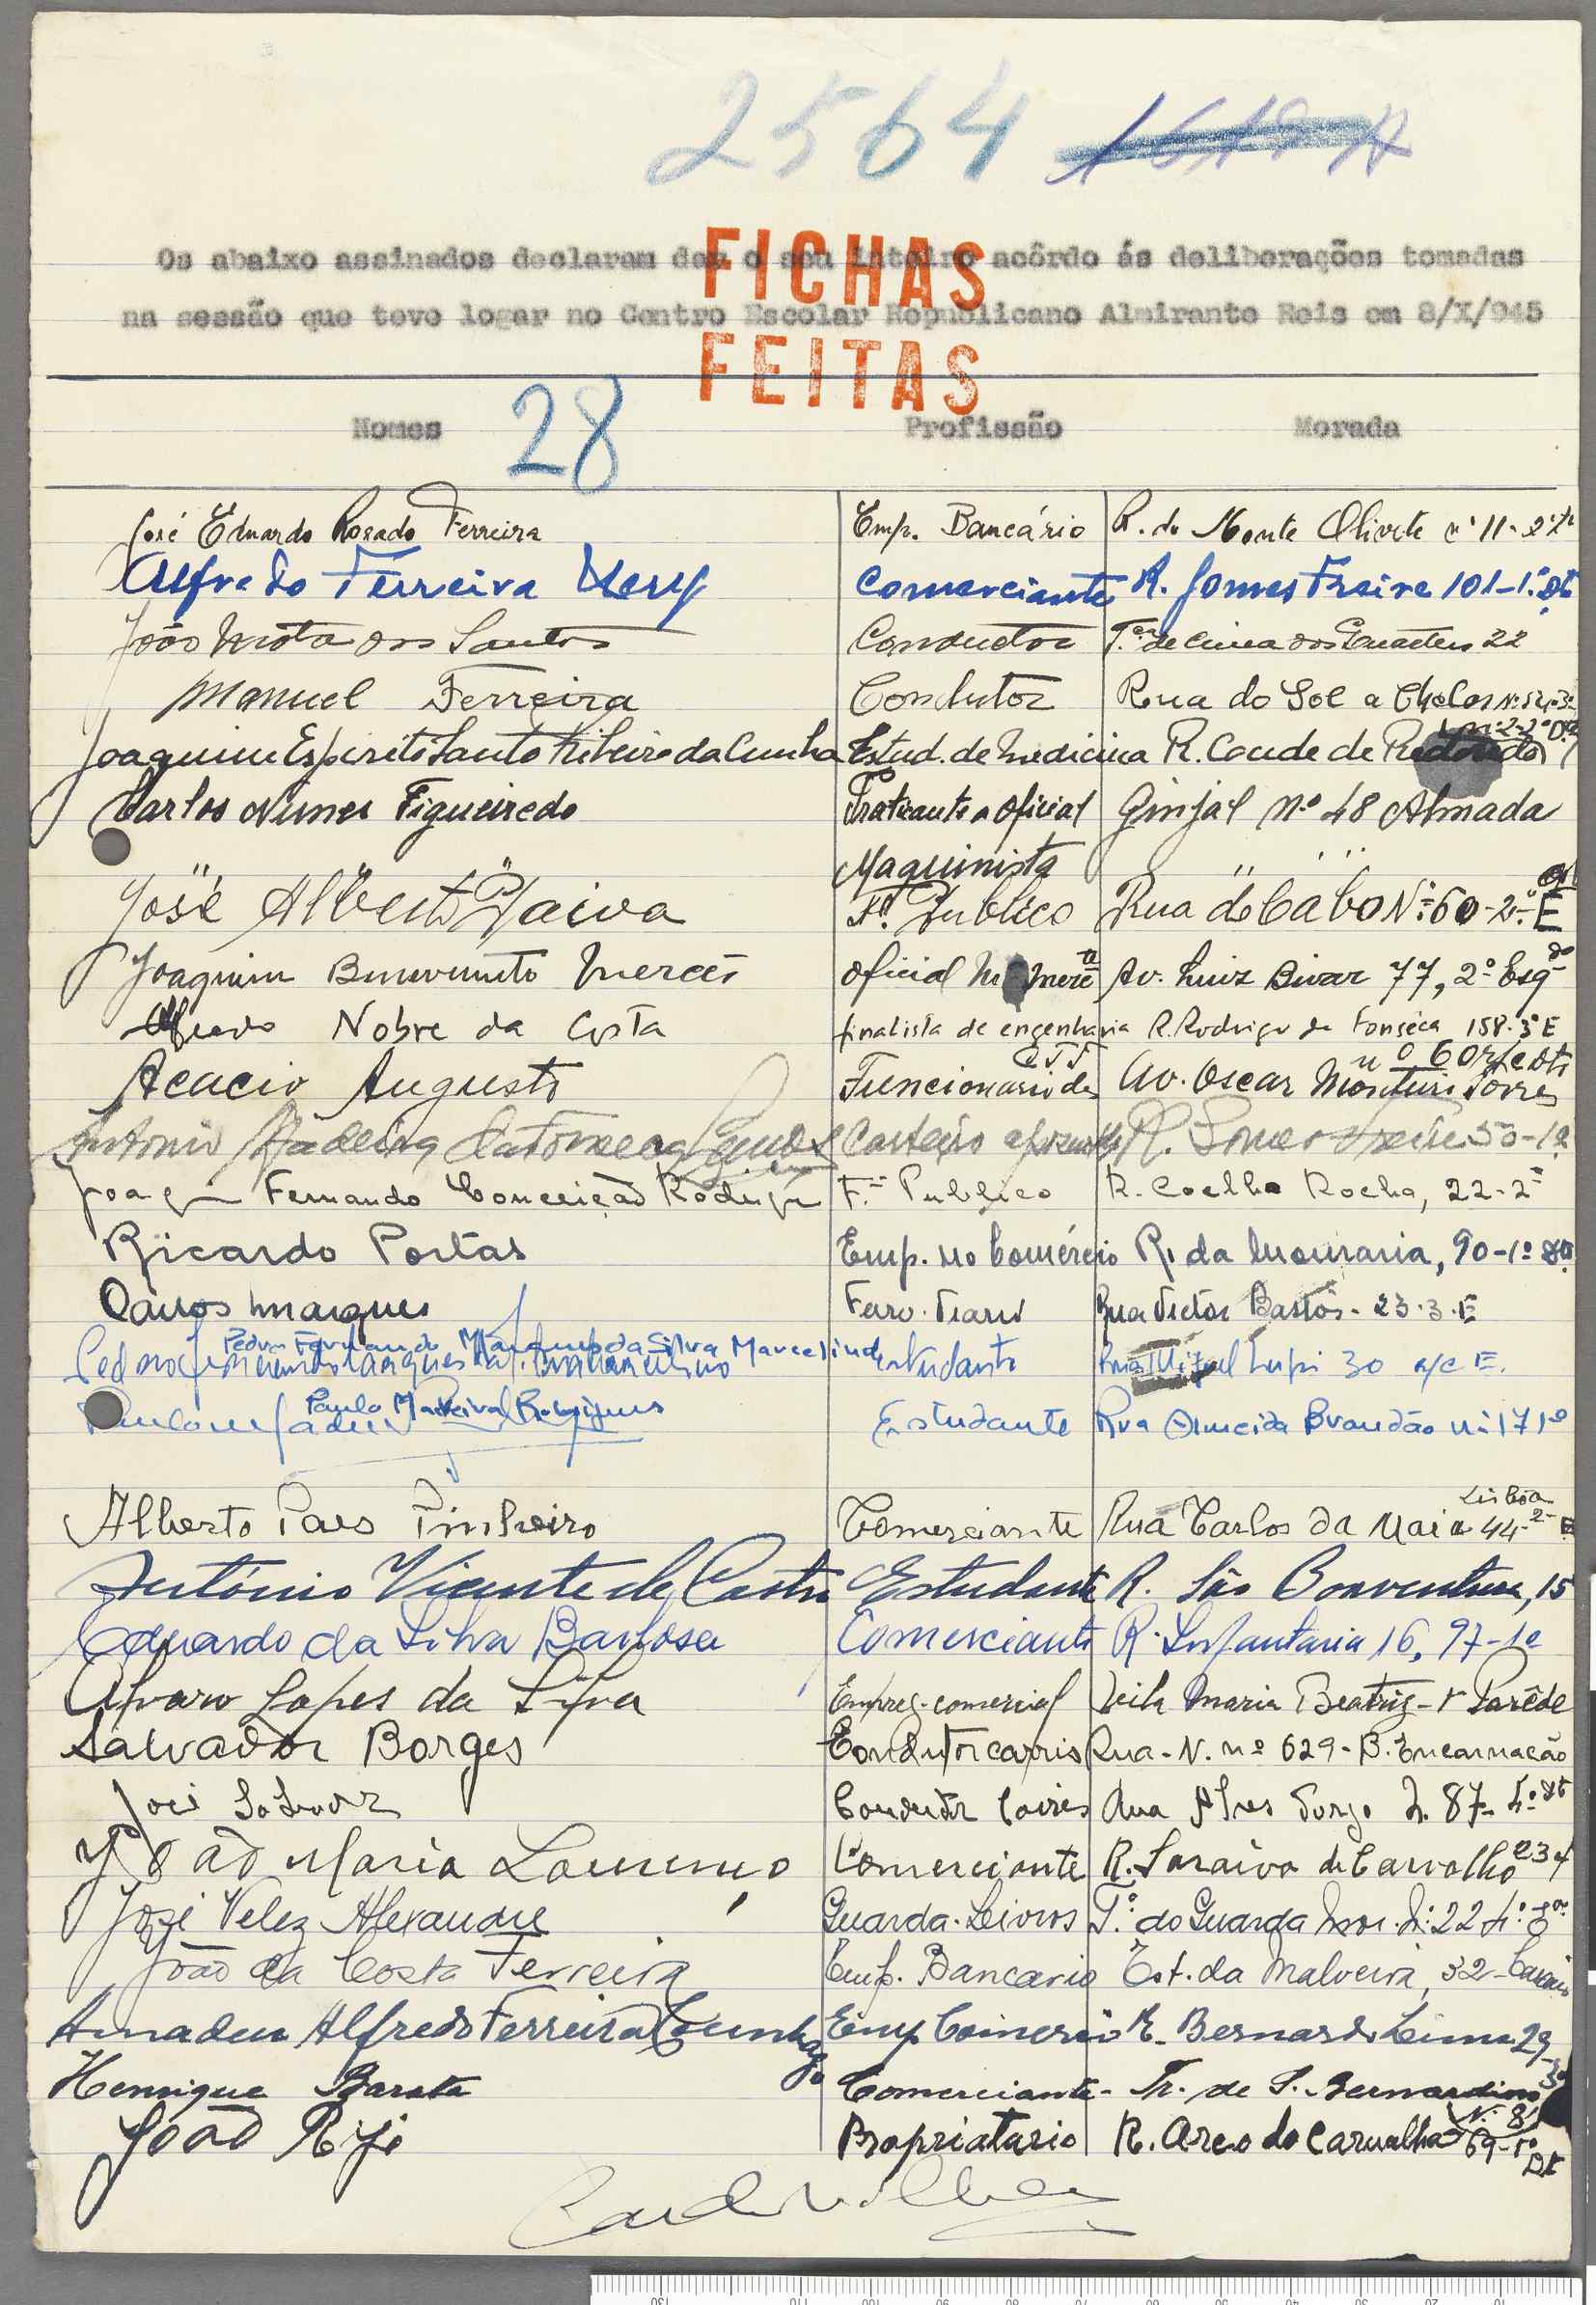 2564 1617 A
Os abaixo assinados declaram dar o seu inteiro acôrdo ás deliberações tomadas
na sessão que teve logar no Centro Escolar Republicano Almirante Reis em 8/X/945
FICHAS
FEITAS
28
Nomes Profissão Morada
José Eduardo Rosado Ferreira Emp. Bancário R. do Monte Olivete nº 11-2º
Alfredo Ferreira Comerciante R. Gomes Freire 101-1º Dt
João Mota dos Santos Conductor Tª de Cima dos Quarteis 22
Manuel Ferreira Condutor Rua do Sol a Chelas
Joaquim Espirito Santo Ribeiro da Cunha Estud. de Medicina R. Conde de Redondo
Carlos Nunes Figueiredo Praticante a Oficial Ginjal nº 48 Almada
Maquinista
José Alberto Paiva Fº. Publico Rua do Cabo Nº 60-2º E
Joaquim Benevenuto Mercês Oficial Mª Merc Av. Luiz Bivar 77, 2º Esqdo
Nobre da Costa finalista de engenharia R. Rodrigo da Fonseca 158-3º E
Acacio Augusto Funcionario dos CTT Av. Oscar Monteiro Torres nº 60 r/c Dt
Antonio Madeira Carteiro R. Gomes Freire 50-1º
Fernando Conceição F. Publico R. Coelho Rocha, 22-2º
Ricardo Portas Emp. no Comércio R. da Mouraria, 90-1º
Carlos Marques Rua Victor Bastos-23-3-E
Pedro Fernando Marques da Silva Marcelino
Estudante Rua Miguel Lupi 30 r/c E.
Paulo Madeira Rodrigues
Estudante Rua Almeida Brandão nº 17 1º
Alberto Paes Pinheiro Comerciante Rua Carlos da Maia 44-2- Lisboa
António Vicente de Castro Estudante R. São Boaventura, 15
Eduardo da Silva Barbosa Comerciante R. Infantaria 16, 97-1º
Alvaro Lopes da Silva Empreg. comercial Vila Maria Beatriz - Parêde
Salvador Borges Condutor carris Rua-N. nº 629-B. Encarnação
José Condutor Carris Rua
João Maria Lourenço Comerciante R. Saraiva de Carvalho 234
José Velez Alexandre Guarda-Livros Tª do Guarda Mor
João da Costa Ferreira Emp. Bancario Est. da Malveira, 32-Cascais
Amadeu Alfredo Ferreira Emp Comercio R. Bernardo Lima 29
Henrique Barata Comerciante - Tr. de S. Bernardino
João Rijo Propriatario R. Arco do Carvalhão 69-1º Dt